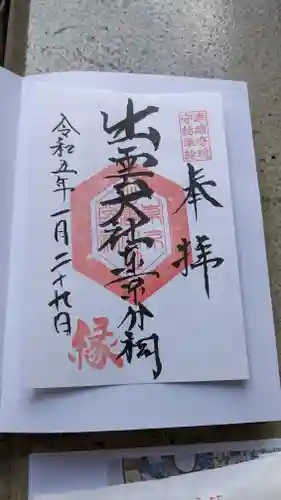 奉拝
出雲大社東京分祠
縁
令和五年一月二十九日